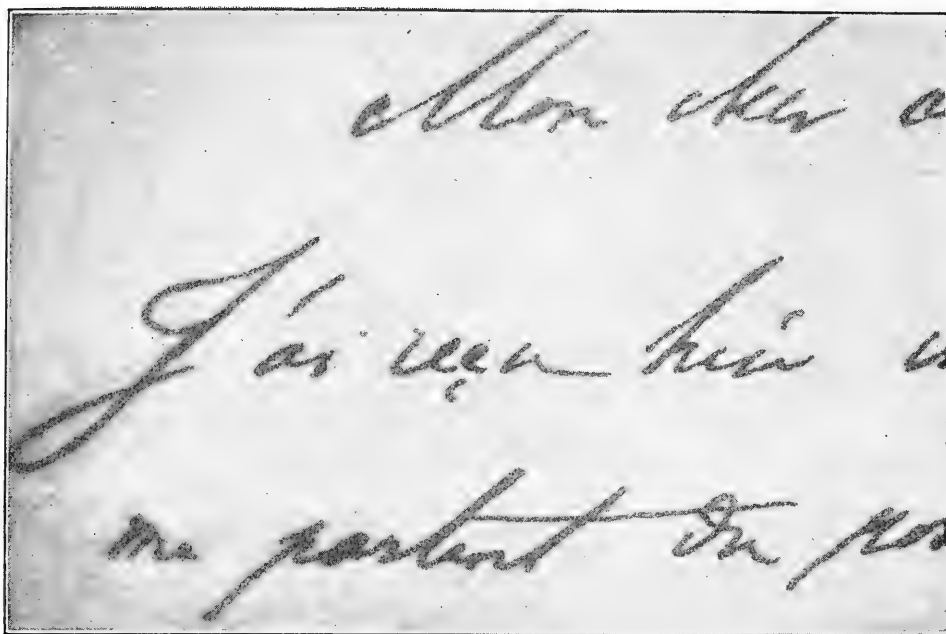 Mon cher
J'ai reçu hier
me parlant du